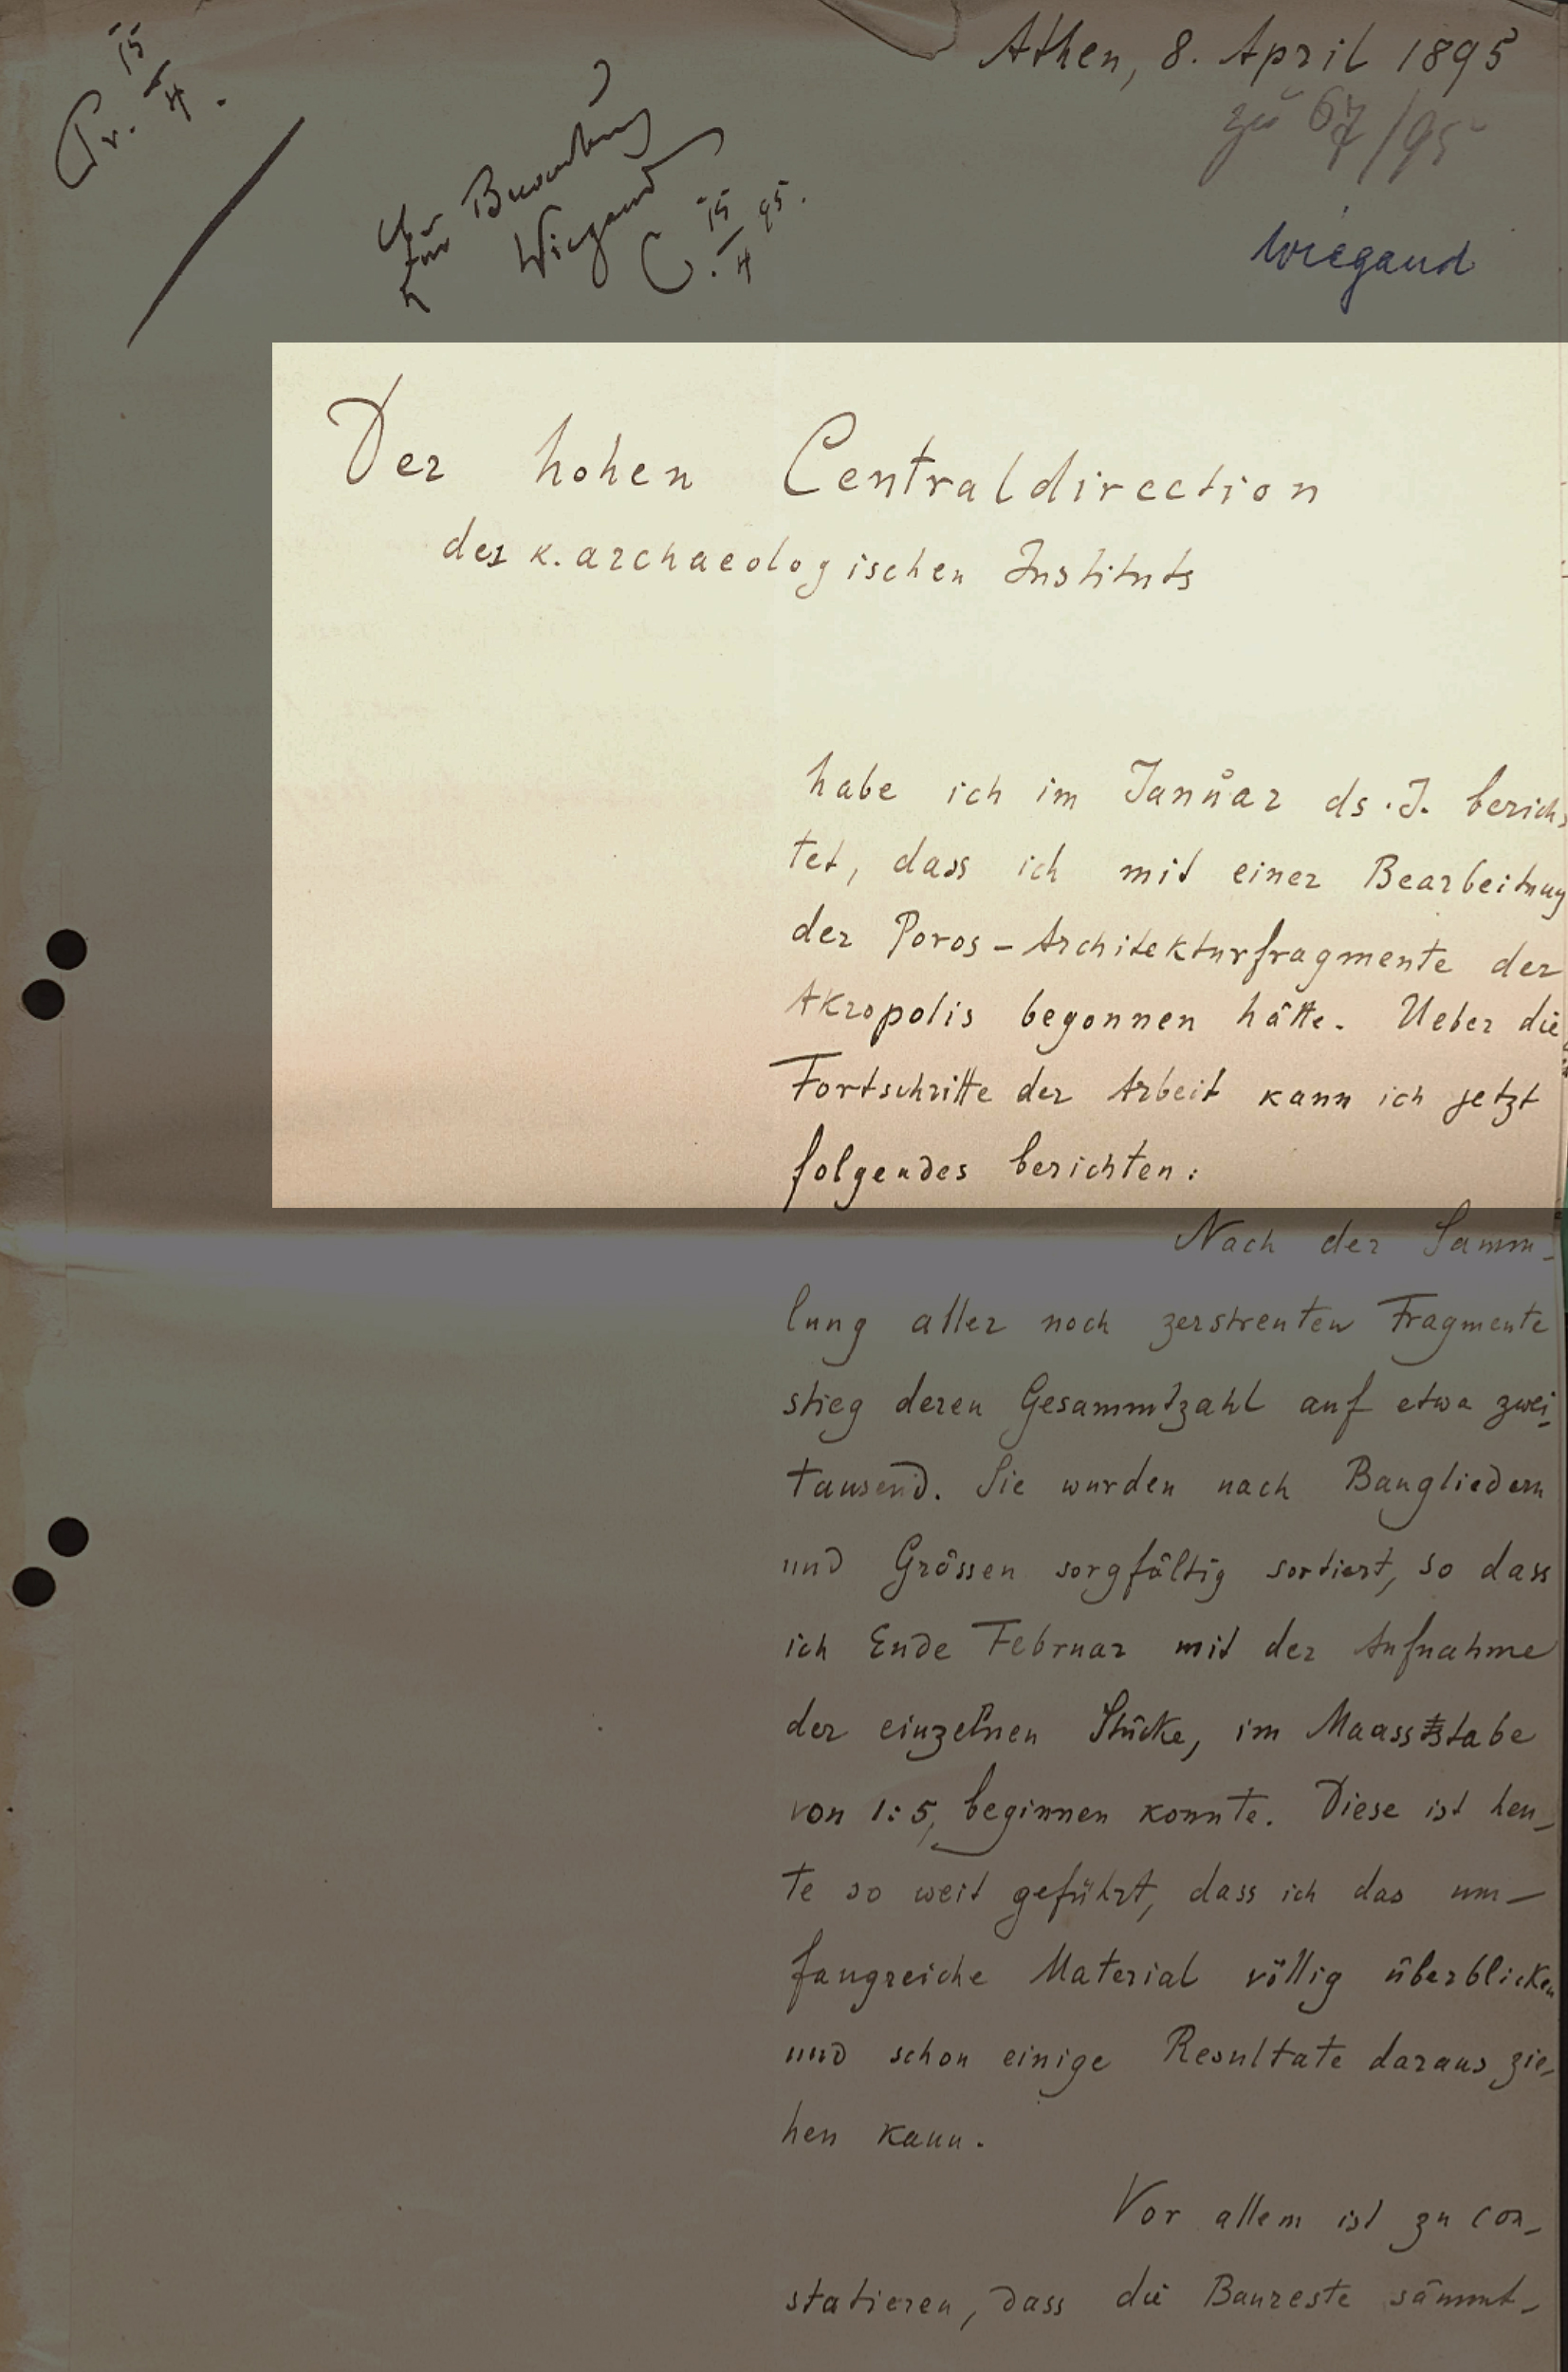 Athen, 8. April 1895
Pr. 15/4.
zu 67/95
Wiegand
15/4 95.
Wiegand
Der hohen Centraldirection
des k. archaeologischen Instituts
habe ich im Januar ds. J. berich-
tet, dass ich mit einer Bearbeitung
der Poros-Architekturfragmente der
Akropolis begonnen hätte. Ueber die
Fortschritte der Arbeit kann ich jetzt
folgendes berichten:
Nach der Samm-
lung aller noch zerstreuten Fragmente
stieg deren Gesammtzahl auf etwa zwei-
tausend. Sie wurden nach Baugliedern
und Grössen sorgfältig sortiert, so dass
ich Ende Februar mit der Aufnahme
der einzelnen Stücke, im Maassstabe
von 1:5, beginnen konnte. Diese ist heu-
te so weit geführt, dass ich das um-
fangreiche Material völlig überblicken
und schon einige Resultate daraus zie-
hen kann.
Vor allem ist zu con-
statieren, dass die Baureste sämmt-